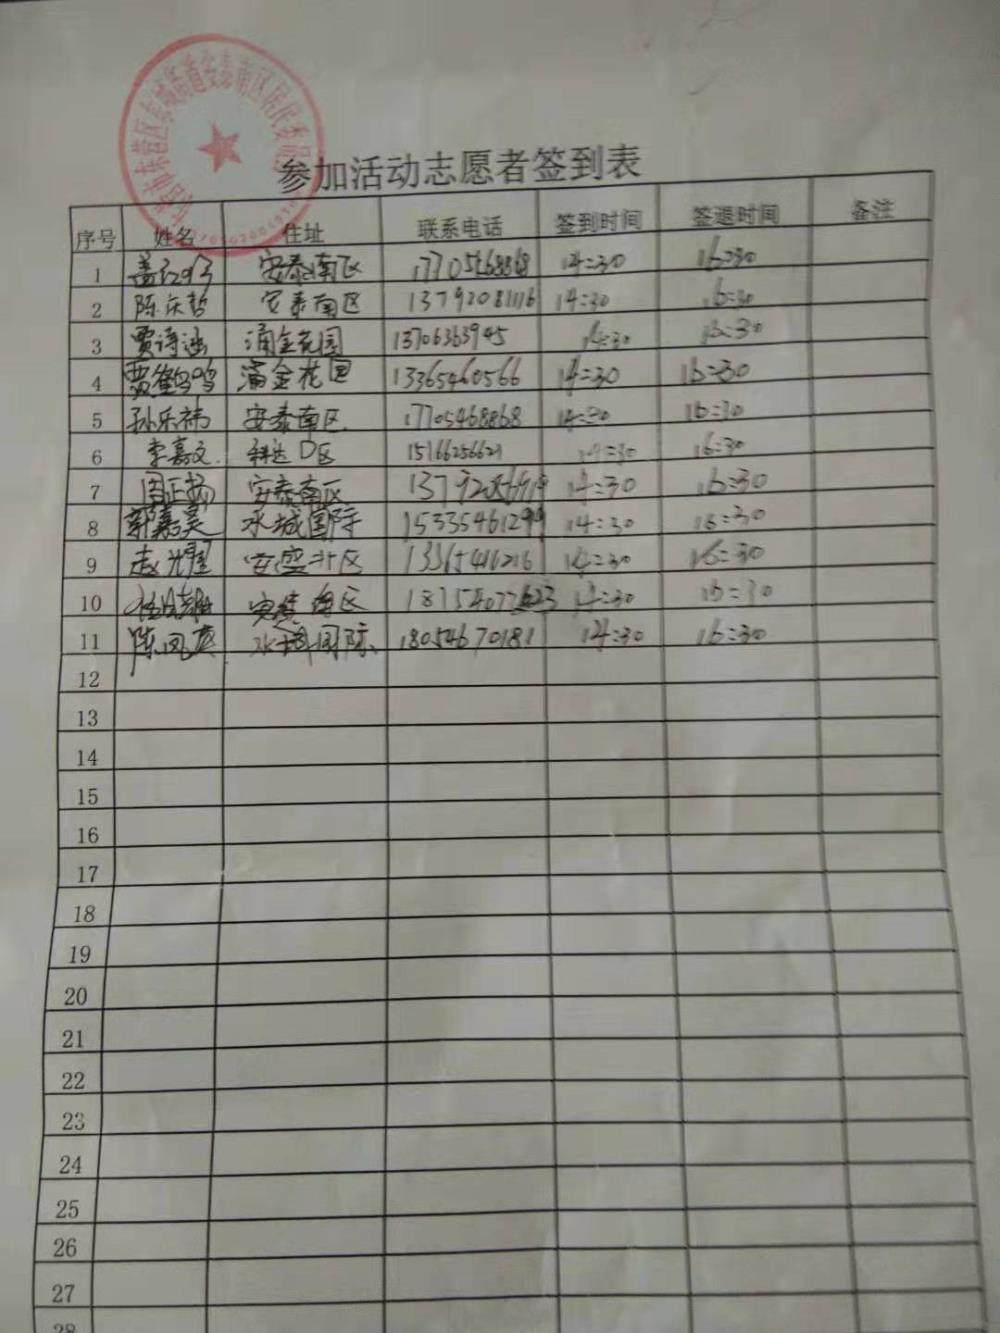 参加活动志愿者签到表
序号 姓名 住址 联系电话 签到时间 签退时间 备注
1 安泰南区 14:30 16:30
2 陈庆哲 安泰南区 13792081116 14:30 16:30
3 贾诗涵 涌金花园 13706363945 14:30 16:30
4 贾鹤鸣 涌金花园 13365460566 14:30 16:30
5 孙乐祎 安泰南区 17705468868 14:30 16:30
6 李嘉文 科达D区 15166256621 14:30 16:30
7 周正扬 安泰南区 14:30 16:30
8 郭嘉昊 水城国际 15335461299 14:30 16:30
9 赵光耀 安盛北区 13365416216 14:30 16:30
10 14:30 16:30
11 陈凤英 水城国际 18054670181 14:30 16:30
12
13
14
15
16
17
18
19
20
21
22
23
24
25
26
27
28